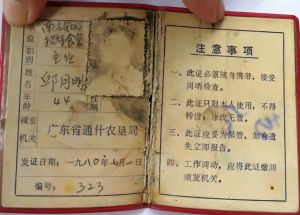 职别
姓名
邱
年龄
44
性别
颁发
机关
广东省通什农垦局
发证日期：一九八〇年七月一日
编号：323
注意事项
一、此证必须随身携带，接受
岗哨检查。
二、此证只限本人使用，不得
转借，涂改无效。
三、此证应妥为保管，如有遗
失立即报告。
四、工作调动，应将此证缴回
颁发机关。